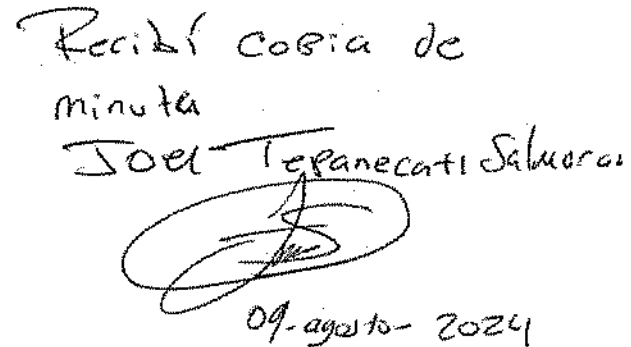 Recibí copia de
minuta
Joel Tepanecatl Salmoran
09-agosto-2024